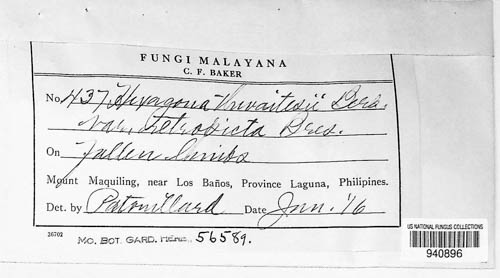 FUNGI MALAYANA
C. F. BAKER
No. 437 Hexagona Thwaitesii Berk.
var. tetrodicta Bres.
On fallen limbs
Mount Maquiling, near Los Baños, Province Laguna, Philipines.
Det. by Patouillard Date Jan. '16
26702
MO. BOT. GARD. HERB. 56589.
US NATIONAL FUNGUS COLLECTIONS
940896